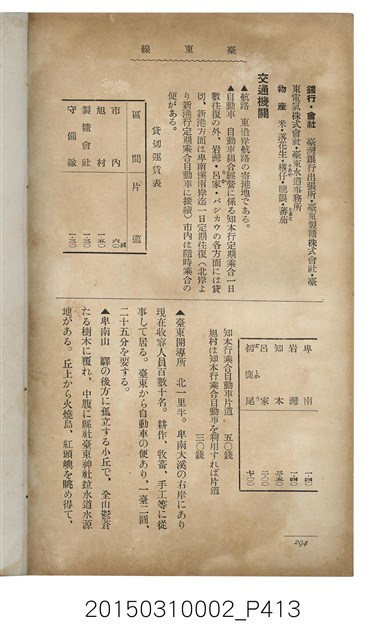 臺東線
銀行・會社　臺灣銀行出張所・臺東製糖株式會社・臺
東電氣株式會社・臺東水道事務所
物產　米・落花生・
交通機關
▲航路　東沿岸航路の寄港地である。
▲自動車　自動車組合經營に係る知本行定期乘合一日
數往復の外、岩灣・呂家・パシカウの各方面には貸
切、新港方面は卑南溪南岸迄一日定期往復（北岸よ
り新港行定期乘合自動車に接續）市內は隨時乘合の
便がある。
貸切運賃表
區間　片道
市內
旭村
製糖會社
守備隊
卑南
岩灣
知本
呂家
初鹿尾
知本行乘合自動車片道　五〇錢
旭村は知本行乘合自動車を利用すれば片道
三〇錢
▲臺東開導所　北一里半。卑南大溪の右岸にあり
現在收容人員百數十名。耕作、牧畜、手工等に從
事して居る。臺東から自動車の便あり、一臺二圓、
二十五分を要する。
▲卑南山　驛の後方に孤立する小丘で、全山鬱蒼
たる樹木に覆れ、中腹に縣社臺東神社竝水道水源
地がある。丘上から火燒島、紅頭嶼を眺め得て、
294
20150310002_P413